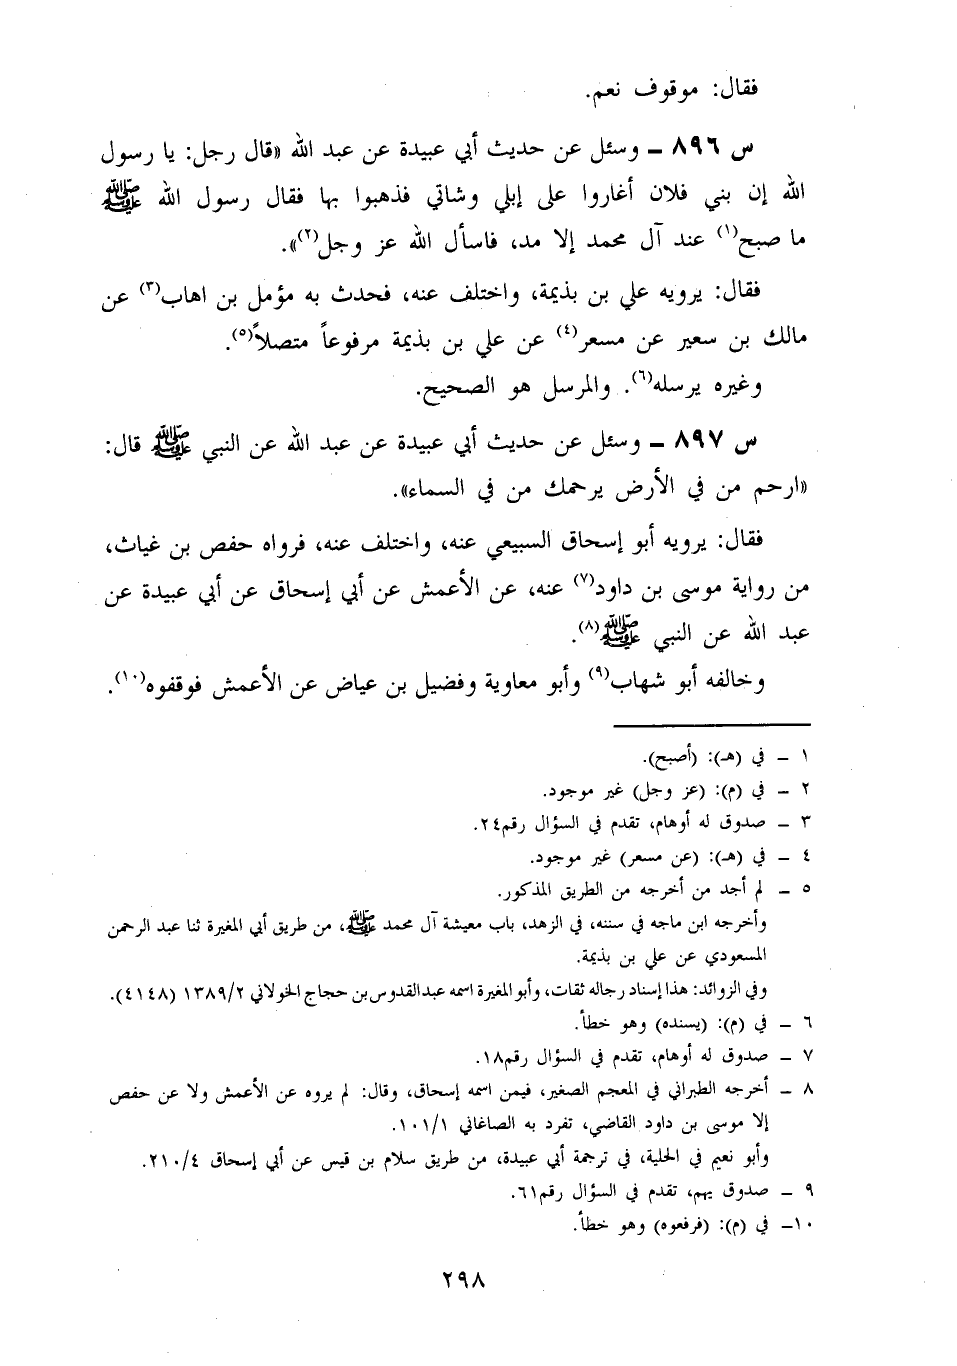 فقال: موقوف نعم.
س ٨٩٦ ـ وسئل عن حديث أبي عبيدة عن عبد الله «قال رجل: يا رسول
الله إن بني فلان أغاروا على إبلي وشاتي فذهبوا بها فقال رسول الله ﷺ
ما صبح(١) عند آل محمد إلا مد، فاسأل الله عز وجل(٢)».
فقال: يرويه علي بن بذيمة، واختلف عنه، فحدث به مؤمل بن اهاب(٣) عن
مالك بن سعير عن مسعر(٤) عن علي بن بذيمة مرفوعاً متصلاً(٥).
وغيره يرسله(٦). والمرسل هو الصحيح.
س ٨٩٧ ـ وسئل عن حديث أبي عبيدة عن عبد الله عن النبي ﷺ قال:
«ارحم من في الأرض يرحمك من في السماء».
فقال: يرويه أبو إسحاق السبيعي عنه، واختلف عنه، فرواه حفص بن غياث،
من رواية موسى بن داود(٧) عنه، عن الأعمش عن أبي إسحاق عن أبي عبيدة عن
عبد الله عن النبي ﷺ(٨).
وخالفه أبو شهاب(٩) وأبو معاوية وفضيل بن عياض عن الأعمش فوقفوه(١٠).
١ ـ في (هـ): (أصبح).
٢ ـ في (م): (عز وجل) غير موجود.
٣ ـ صدوق له أوهام، تقدم في السؤال رقم٢٤.
٤ ـ في (هـ): (عن مسعر) غير موجود.
٥ ـ لم أجد من أخرجه من الطريق المذكور.
وأخرجه ابن ماجه في سننه، في الزهد، باب معيشة آل محمد ﷺ، من طريق أبي المغيرة ثنا عبد الرحمن
المسعودي عن علي بن بذيمة.
وفي الزوائد: هذا إسناد رجاله ثقات، وأبو المغيرة اسمه عبدالقدوس بن حجاج الخولاني ١٣٨٩/٢ (٤١٤٨).
٦ ـ في (م): (يسنده) وهو خطأ.
٧ ـ صدوق له أوهام، تقدم في السؤال رقم١٨.
٨ ـ أخرجه الطبراني في المعجم الصغير، فيمن اسمه إسحاق، وقال: لم يروه عن الأعمش ولا عن حفص
إلا موسى بن داود القاضي، تفرد به الصاغاني ١٠١/١.
وأبو نعيم في الحلية، في ترجمة أبي عبيدة، من طريق سلام بن قيس عن أبي إسحاق ٢١٠/٤.
٩ ـ صدوق يهم، تقدم في السؤال رقم٦١.
١٠ـ في (م): (فرفعوه) وهو خطأ.
٢٩٨